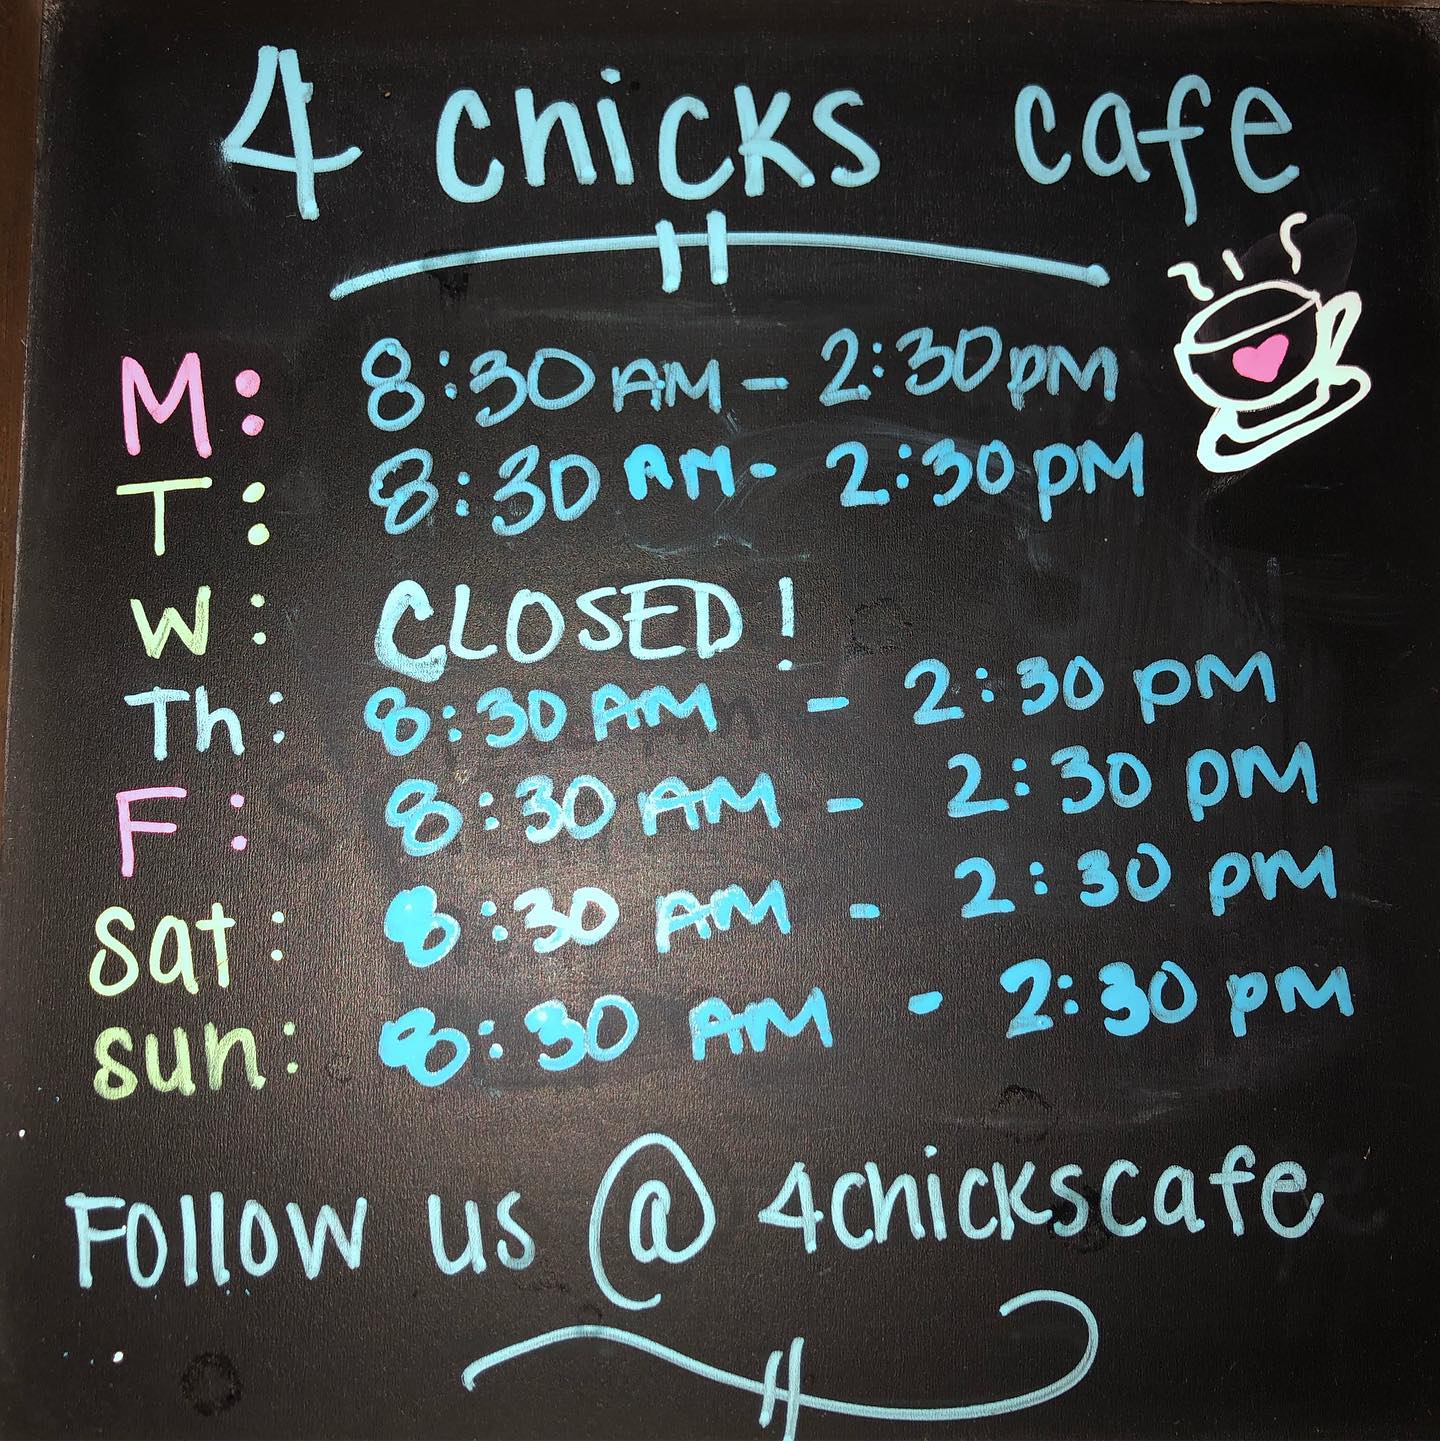 4 chicks cafe
M: 8:30 AM - 2:30 PM
T: 8:30 AM - 2:30 PM
W: CLOSED!
Th: 8:30 AM - 2:30 PM
F: 8:30 AM - 2:30 PM
Sat: 8:30 AM - 2:30 PM
Sun: 8:30 AM - 2:30 PM
Follow us @ 4chickscafe